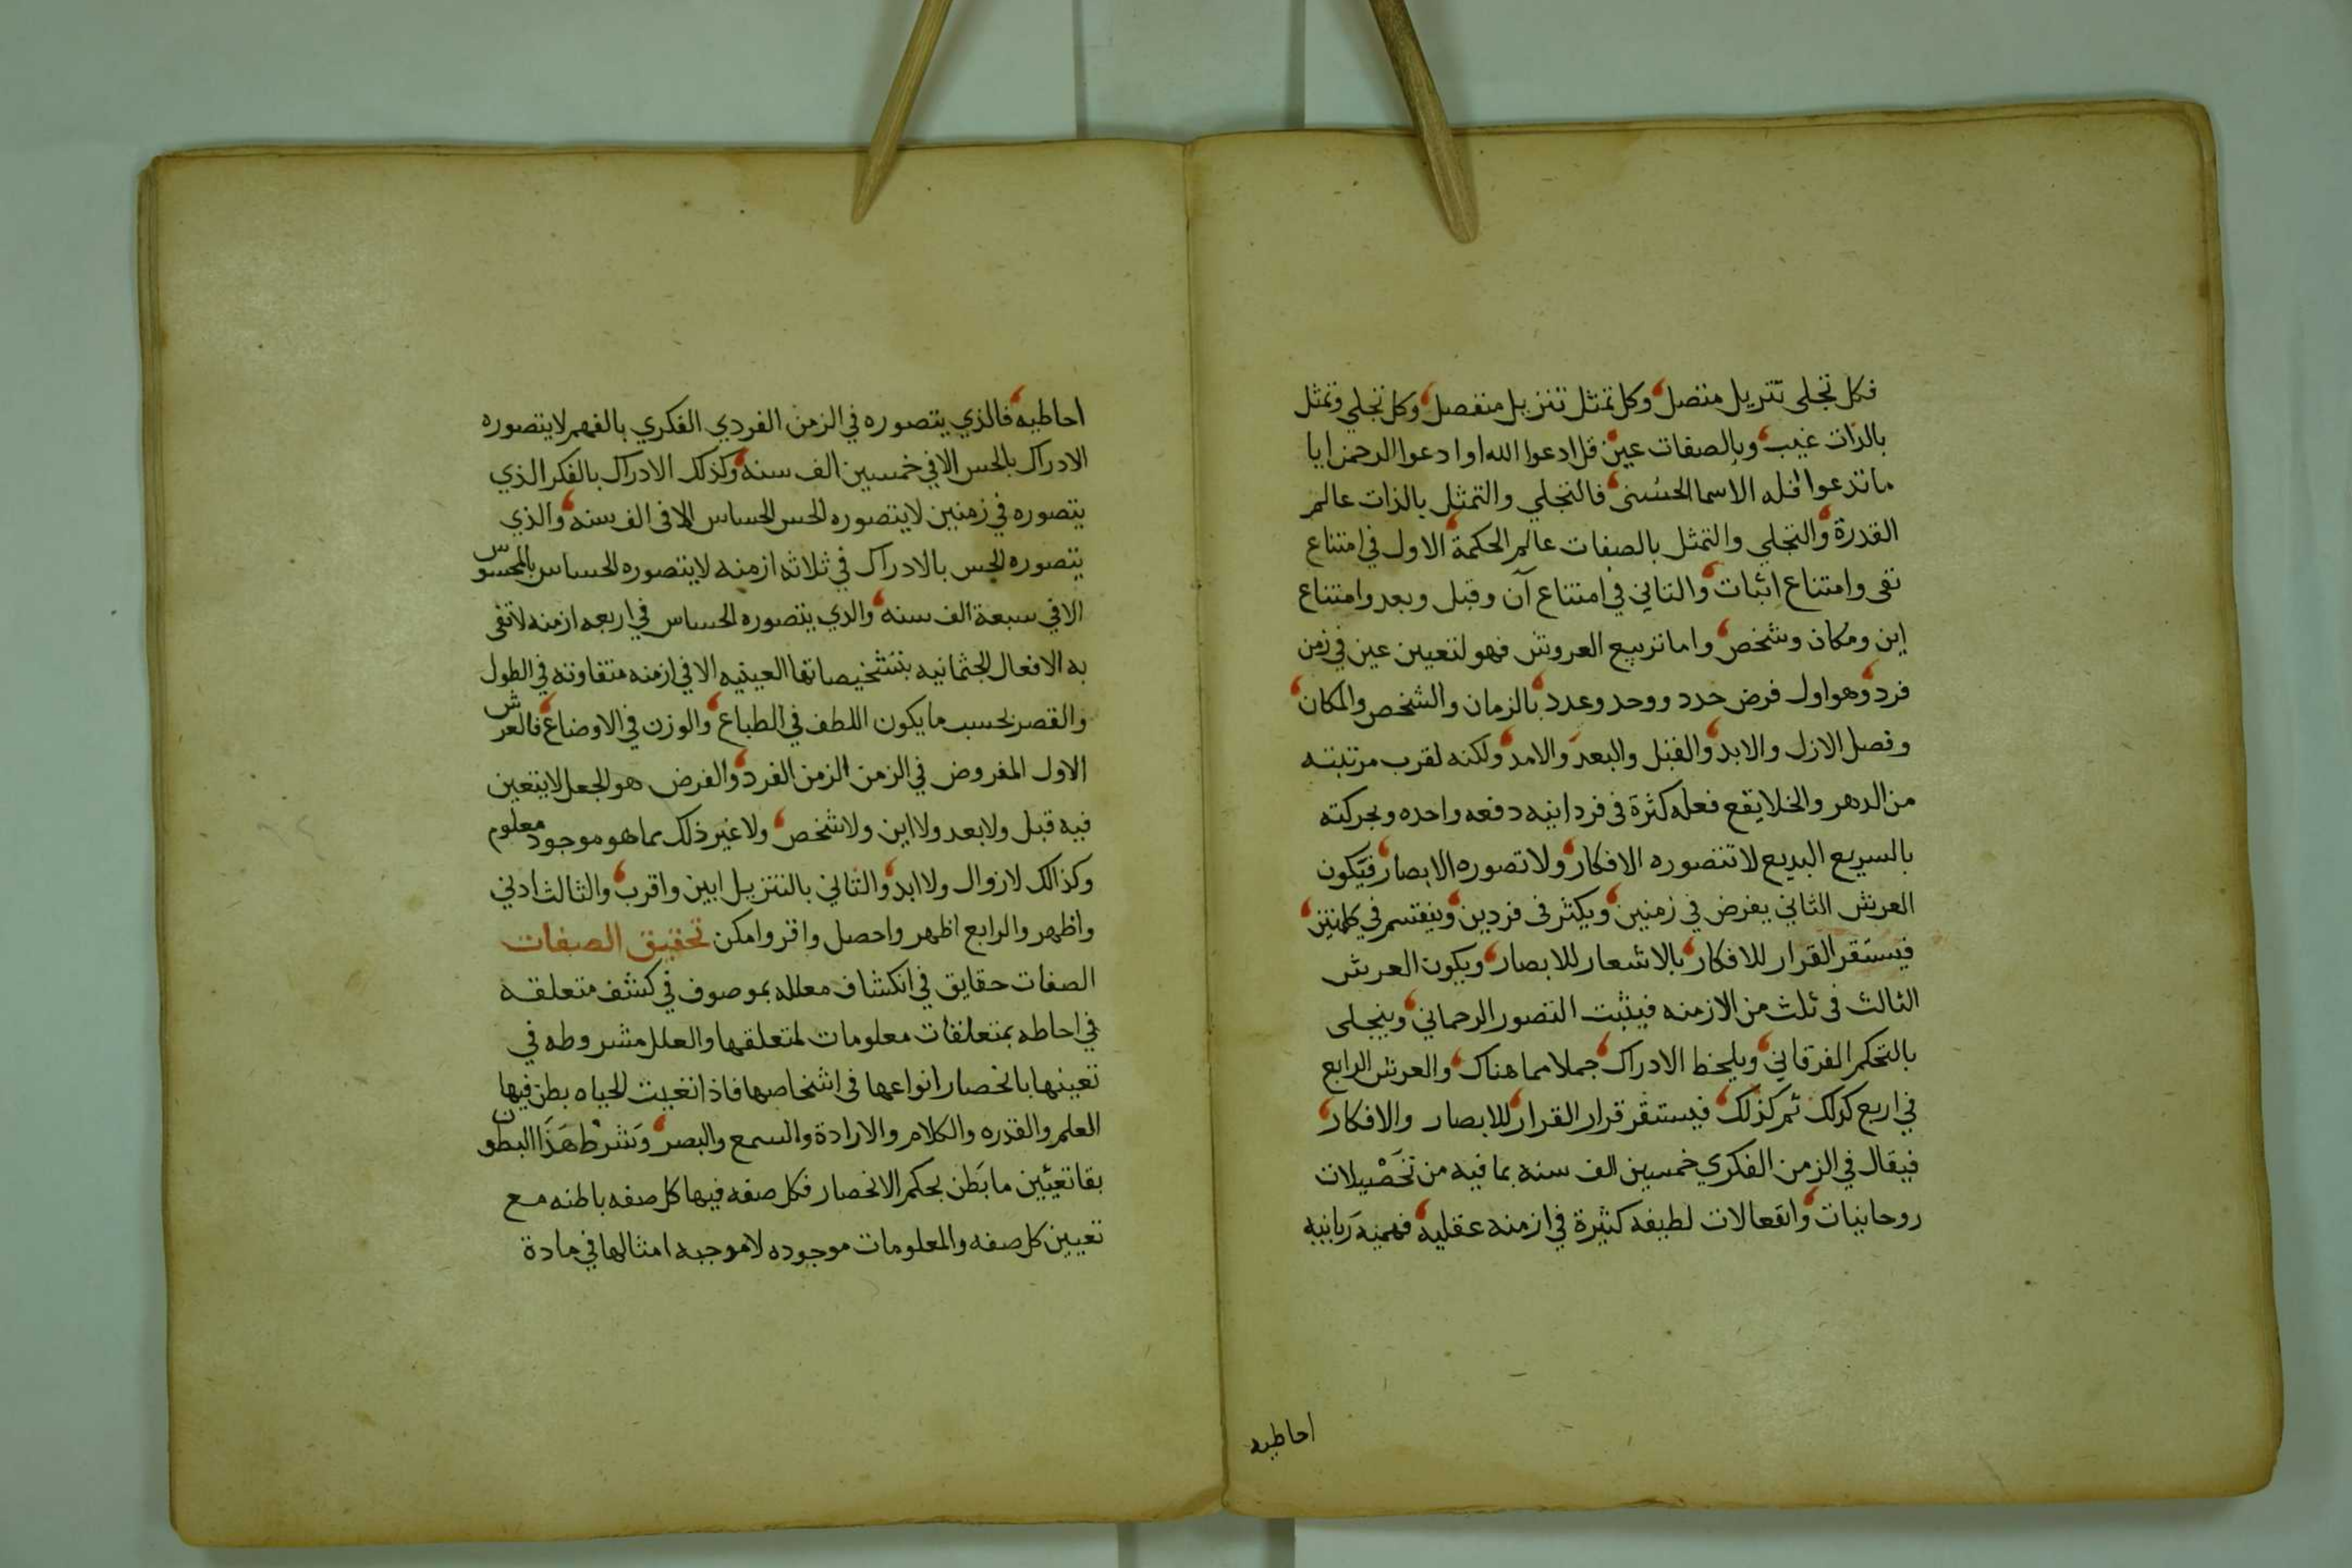 فكل تجلي تنزيل متصل وكل تمثل تنزيل منفصل وكل تجلي وتمثل
بالذات غيب وبالصفات عين قل ادعوا الله او ادعوا الرحمن ايا
ما تدعوا فله الاسما الحسنى فالتجلي والتمثل بالذات عالم
القدرة والتجلي والتمثل بالصفات عالم الحكمة الاول في امتناع
نفى وامتناع اثبات والثاني في امتناع آن وقبل وبعد وامتناع
اين ومكان وشخص واما تربيع العروش فهو لتعيين عين في زمن
فرد وهو اول فرض حدد ووحد وعدد بالزمان والشخص والمكان
وفصل الازل والابد والقبل والبعد والامد ولكنه لقرب مرتبته
من الدهر والخلا يقع فعله كثرة فى فردانيه دفعه واحده وبحركته
بالسريع البديع لا تتصوره الافكار ولا تصوره الابصار فيكون
العرش الثاني يفرض في زمنين ويكثر فى فردين وينقسم في كلمتين
فيستقر القرار للافكار بالاشعار للابصار ويكون العرش
الثالث فى ثلث من الازمنه فيثبت التصور الرحماني وينجلى
بالتحكم الفرقاني ويلحظ الادراك جملا مما هناك والعرش الرابع
في اربع كذلك ثم كذلك فيستقر قرار القرار للابصار والافكار
فيقال في الزمن الفكري خمسين الف سنه بما فيه من تحصيلات
روحانيات وانفعالات لطيفه كثيرة في ازمنه عقليه فهميه ربانيه
احاطيه
احاطيه فالذي يتصوره في الزمن الفردي الفكري بالفهم لا يتصوره
الادراك بالحس الا في خمسين الف سنه وكذلك الادراك بالفكر الذي
يتصوره في زمنين لا يتصوره الحس الحساس الا فى الف سنه والذي
يتصوره الحس بالادراك في ثلاثه ازمنه لا يتصوره الحساس بالمحسوس
الا في سبعة الف سنه والذي يتصوره الحساس في اربعه ازمنه لا تفى
به الافعال الجثمانيه بتشخيصاتها العينيه الا في ازمنه متفاوته في الطول
والقصر بحسب ما يكون اللطف في الطباع والوزن في الاوضاع فالعرش
الاول المفروض في الزمن الزمن الفرد والفرض هو الجعل لا يتعين
فيه قبل ولا بعد ولا اين ولا شخص ولا غير ذلك مما هو موجود معلوم
وكذالك لا زوال ولا ابد والثاني بالتنزيل ابين واقرب والثالث ادني
واظهر والرابع اظهر واحصل واقر وامكن تحقيق الصفات
الصفات حقايق في انكشاف معلله بموصوف في كشف متعلقه
في احاطه بمتعلقات معلومات لمتعلقها والعلل مشروطه في
تعينها بانحصار انواعها فى اشخاصها فاذا تغيبت الحياه بطن فيها
العلم والقدره والكلام والارادة والسمع والبصر وشرط هذا البطون
بقا تعيين ما بطن بحكم الانحصار فكل صفه فيها كل صفه باطنه مع
تعيين كل صفه والمعلومات موجوده لا موجبه امثالها في مادة